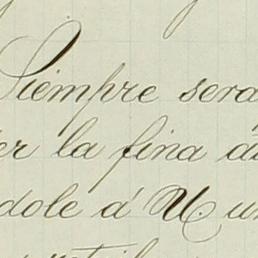 Siempre será
er la fina a
dole á U. un